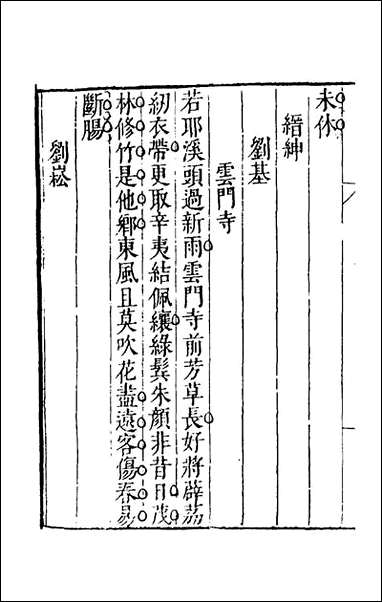 未休
縉紳
劉基
雲門寺
若耶溪頭過新雨雲門寺前芳草長好將薜荔
紉衣帶更取辛夷結佩纕綠鬂朱顔非昔日茂
林修竹是他鄉東風且莫吹花盡遠客傷春易
斷腸
劉崧